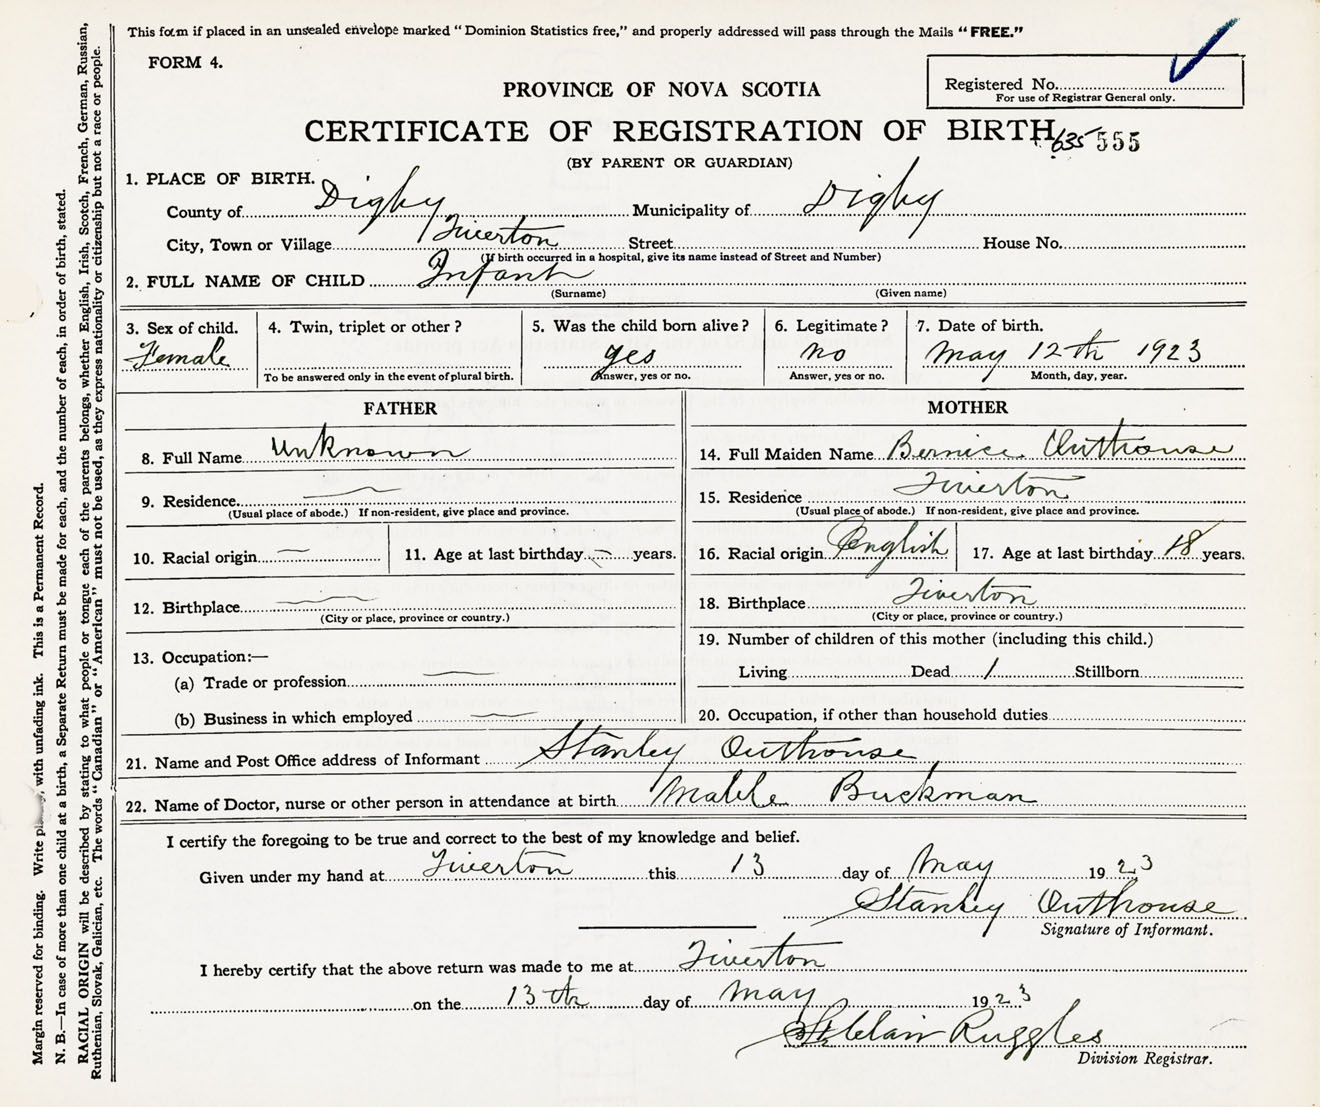 This form if placed in an unsealed envelope marked "Dominion Statistics free," and properly addressed will pass through the Mails "FREE."
FORM 4.
Registered No.
For use of Registrar General only.
PROVINCE OF NOVA SCOTIA
CERTIFICATE OF REGISTRATION OF BIRTH
635 555
(BY PARENT OR GUARDIAN)
1. PLACE OF BIRTH.
County of Digby Municipality of Digby
City, Town or Village Tiverton Street House No.
(If birth occurred in a hospital, give its name instead of Street and Number)
2. FULL NAME OF CHILD Infant
(Surname) (Given name)
3. Sex of child. 4. Twin, triplet or other? 5. Was the child born alive? 6. Legitimate? 7. Date of birth.
Female yes no May 12th 1923
To be answered only in the event of plural birth. Answer, yes or no. Answer, yes or no. Month, day, year.
FATHER
8. Full Name Unknown
9. Residence
(Usual place of abode.) If non-resident, give place and province.
10. Racial origin — 11. Age at last birthday — years.
12. Birthplace —
(City or place, province or country.)
13. Occupation:—
(a) Trade or profession —
(b) Business in which employed —
MOTHER
14. Full Maiden Name Bernice Outhouse
15. Residence Tiverton
(Usual place of abode.) If non-resident, give place and province.
16. Racial origin English 17. Age at last birthday 18 years.
18. Birthplace Tiverton
(City or place, province or country.)
19. Number of children of this mother (including this child.)
Living Dead 1 Stillborn
20. Occupation, if other than household duties
21. Name and Post Office address of Informant Stanley Outhouse
22. Name of Doctor, nurse or other person in attendance at birth Mable Buckman
I certify the foregoing to be true and correct to the best of my knowledge and belief.
Given under my hand at Tiverton this 13 day of May 1923
Stanley Outhouse
Signature of Informant.
I hereby certify that the above return was made to me at Tiverton
on the 13th day of May 1923
St Clair Ruggles
Division Registrar.
Margin reserved for binding. Write with unfading ink. This is a Permanent Record.
N. B.—In case of more than one child at a birth, a Separate Return must be made for each, and the number of each, in order of birth, stated.
RACIAL ORIGIN will be described by stating to what people or tongue each of the parents belongs, whether English, Irish, Scotch, French, German, Russian,
Ruthenian, Slovak, Galician, etc. The words "Canadian" or "American" must not be used, as they express nationality or citizenship but not a race or people.